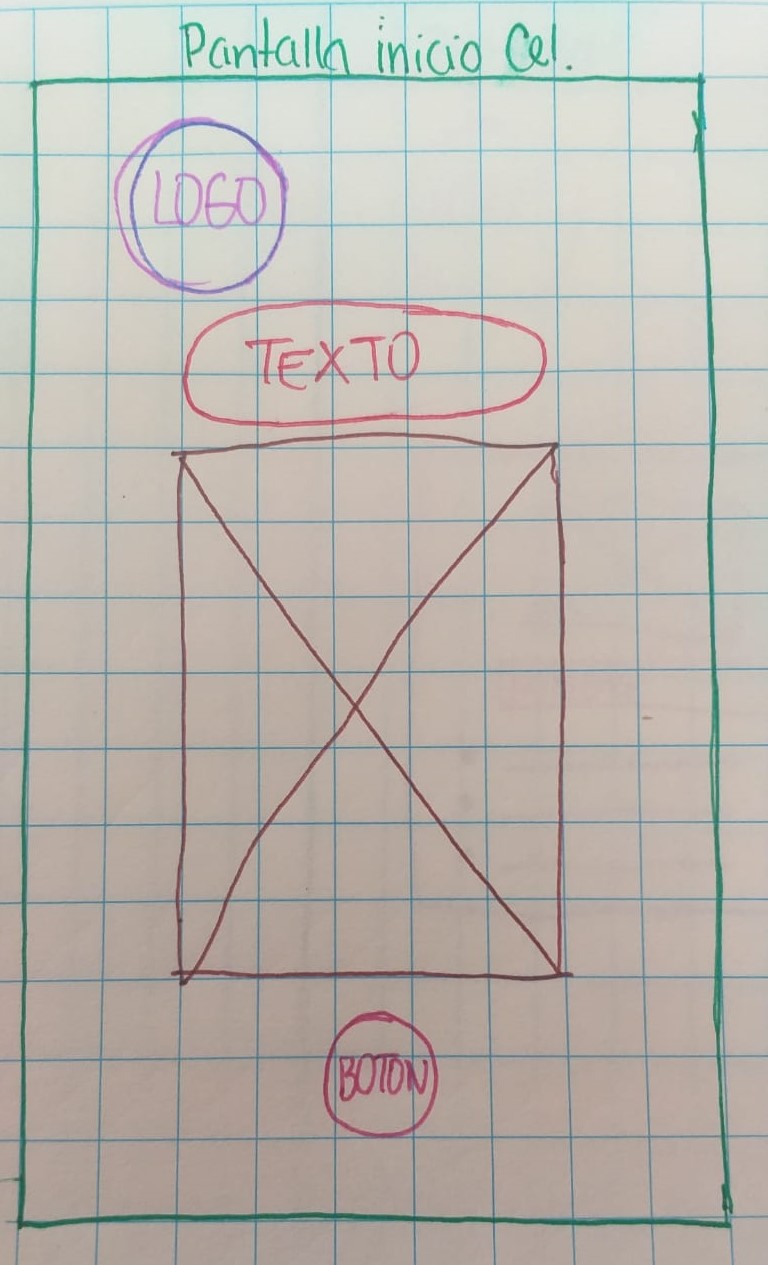 Pantalla inicio Cel.
LOGO
TEXTO
BOTON